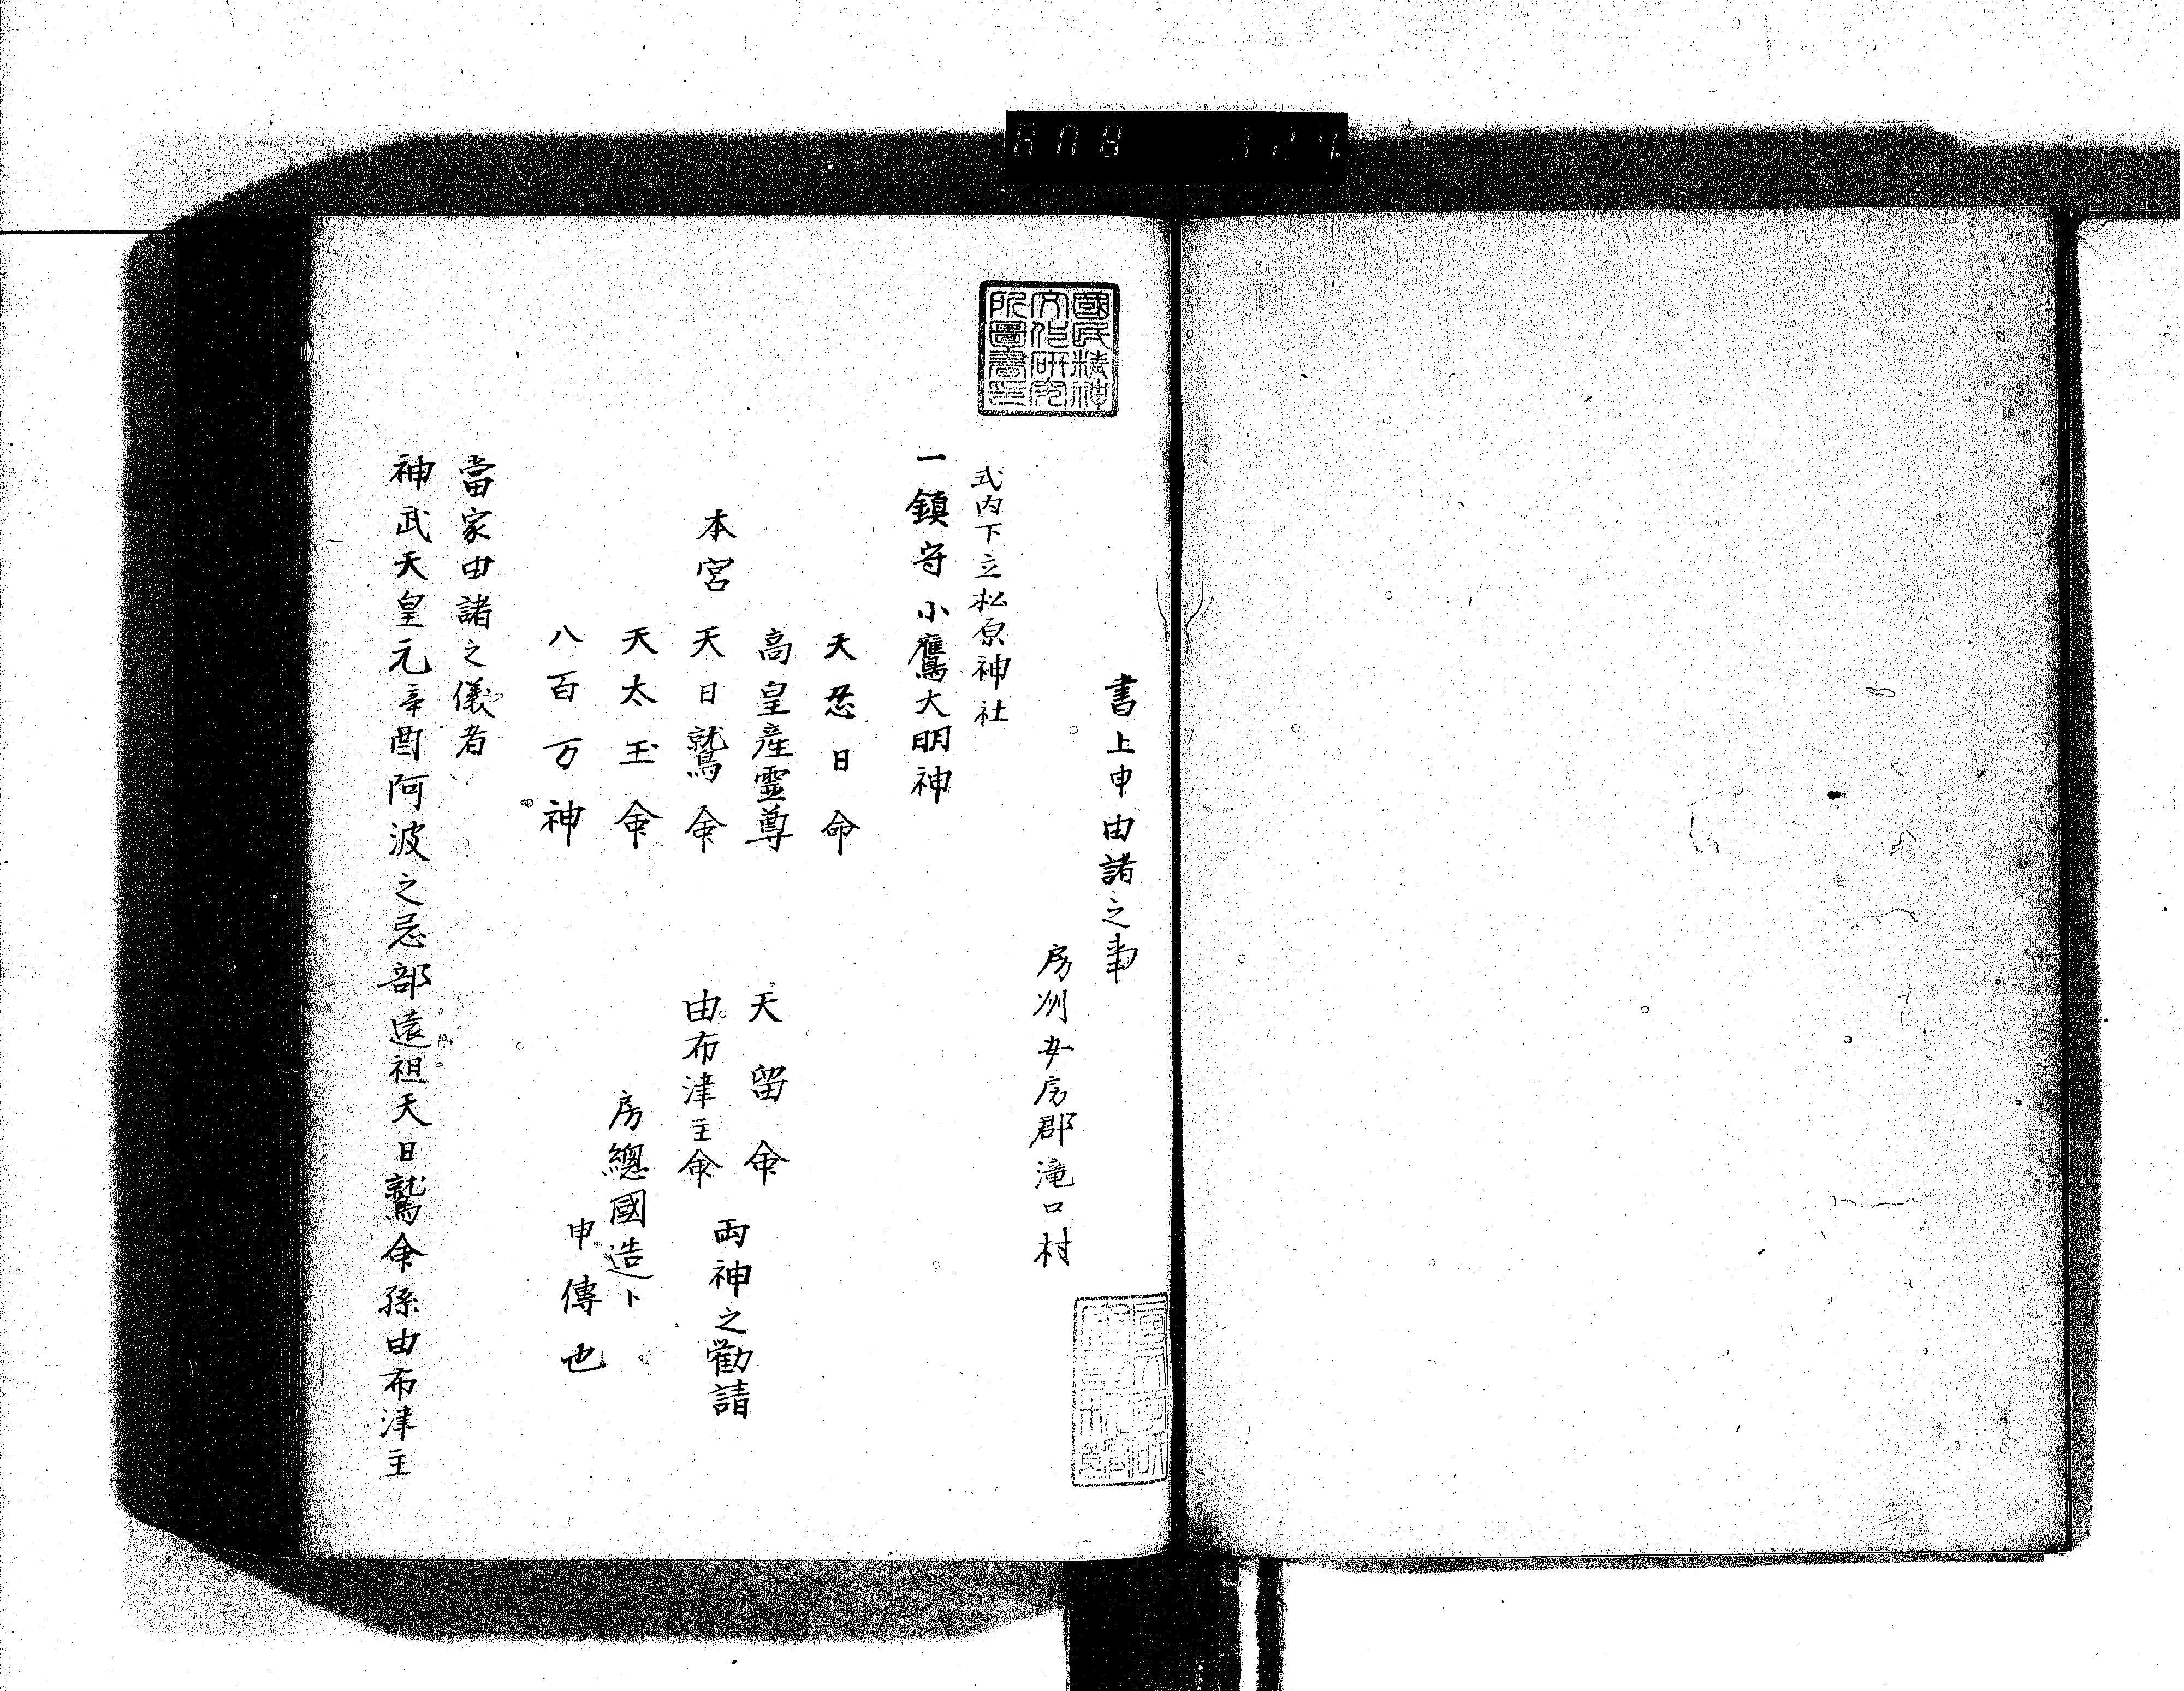 書上申由諸之事
房州安房郡滝口村
式内下立松原神社
一鎮守小鷹大明神
天忍日命
高皇産霊尊
本宮天日鷲命
天太玉命
八百万神
天留命
由布津主命
両神之勧請
房總國造ト
申傳也
當家由諸之儀者
神武天皇元辛酉阿波之忌部遠祖天日鷲命孫由布津主
國民精神
文化研究
所圖書印